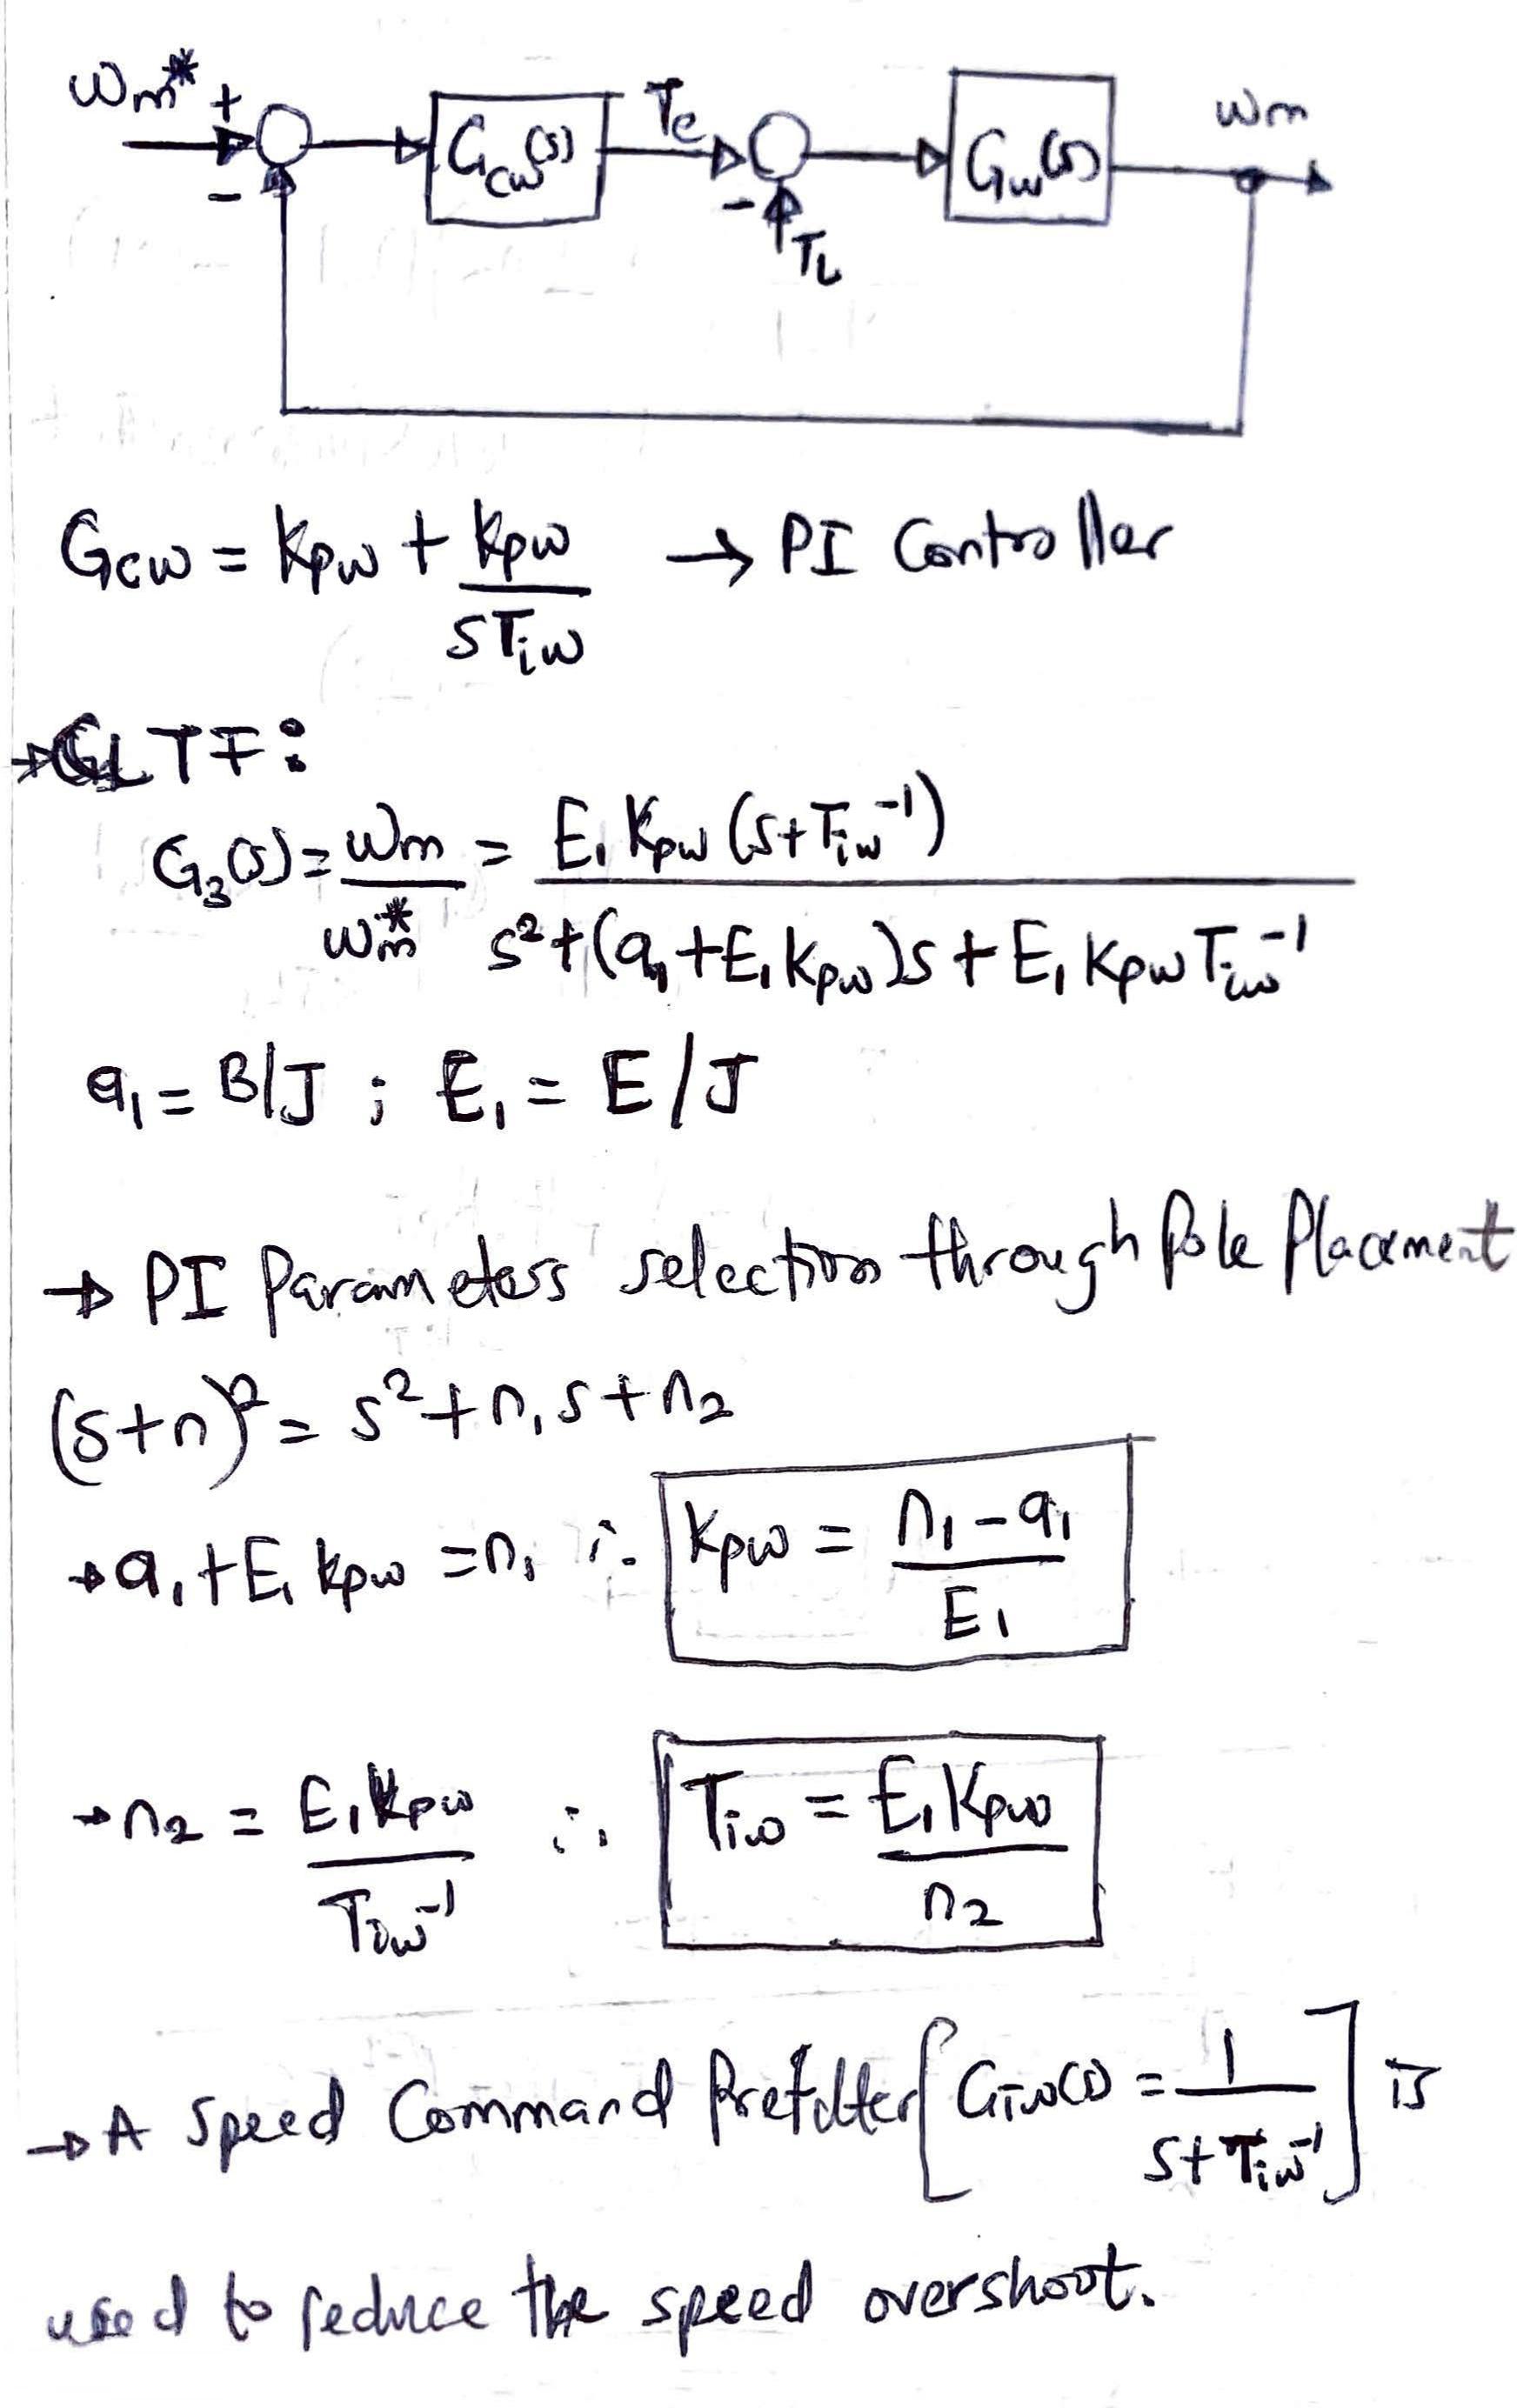 ωm* + Gcω(s) Te Gω(s) ωm
- - TL
Gcω = Kpω + Kpω/(sTiω) → PI Controller
→ CLTF:
G3(s) = ωm/ωm* = E1 Kpω (s+Tiω⁻¹) / (s²+(a1+E1 Kpω)s + E1 Kpω Tiω⁻¹)
a1 = B/J ; E1 = E/J
→ PI Parameters selection through Pole Placement
(s+n)² = s²+n1s+n2
→ a1+E1 kpω = n1 ∴ Kpω = (n1-a1)/E1
→ n2 = E1Kpω/Tiω⁻¹ ∴ Tiω = E1Kpω/n2
→ A Speed Command Prefilter [Giω(s) = 1/(s+Tiω⁻¹)] is
used to reduce the speed overshoot.